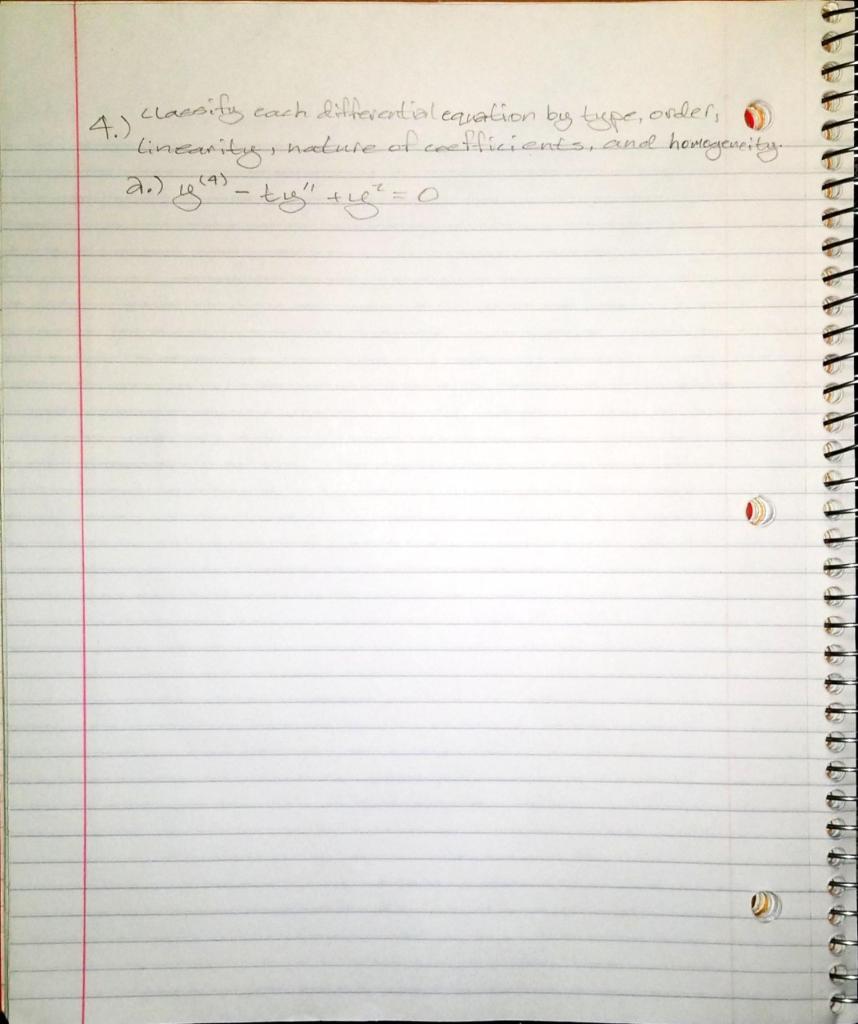 4.) Classify each differential equation by type, order,
linearity, nature of coefficients, and homogeneity.
a.) y⁽⁴⁾ - ty'' + y² = 0